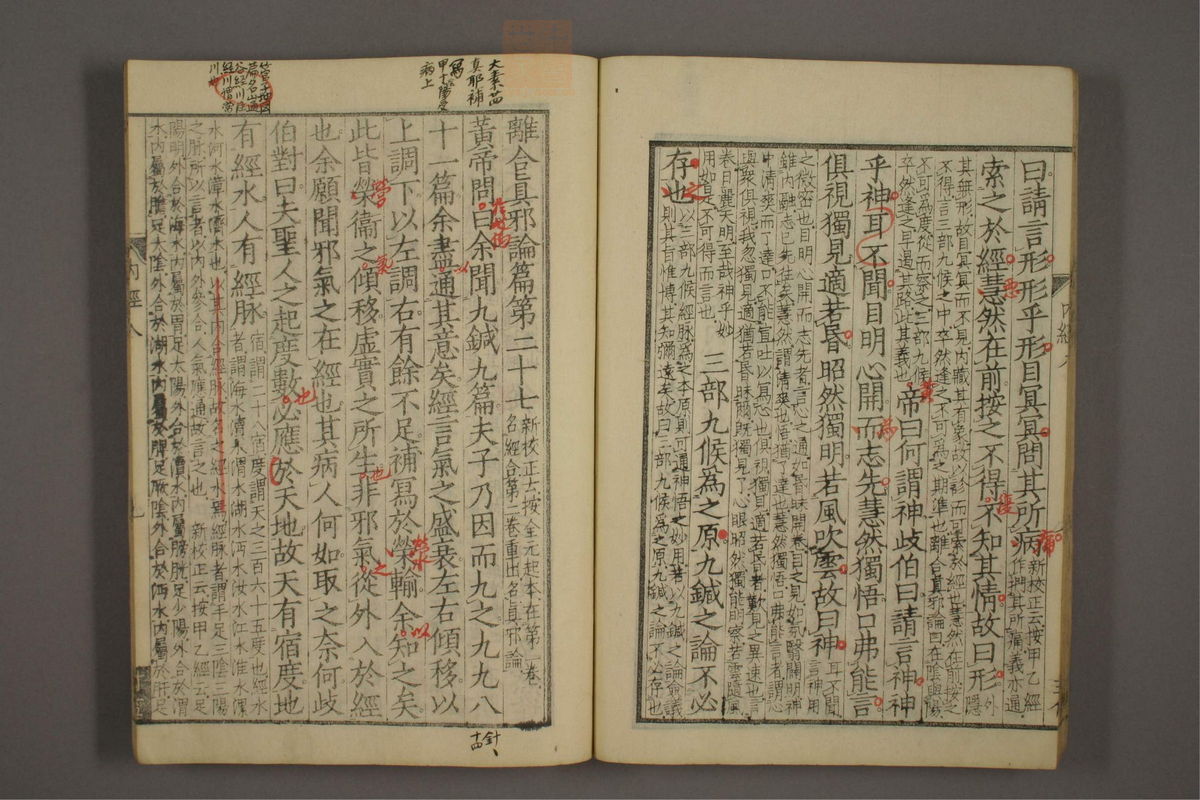 曰請言形形乎形目冥冥問其所病新校正云按甲乙經作捫其所痛義亦通
索之於經慧然在前按之不得不知其情故曰形外隱
其無形故目冥冥而不見內藏其有象故以診而可索於經也慧然在前按之
不得言三部九候之中卒然逢之不可爲之期準也離合眞邪論曰在陰與陽
不可爲度從而察之三部九候
卒然逢之早遏其路此其義也帝曰何謂神歧伯曰請言神神
乎神耳不聞目明心開而志先慧然獨悟口弗能言
俱視獨見適若昏昭然獨明若風吹雲故曰神耳不聞言神用
之微密也目明心開而志先者言心之通如昏昧開卷目之見如氛翳闢明神
雖內融志已先往矣慧然謂清爽也悟猶了達也慧然獨悟口弗能言者謂心
中清爽而了達口不能宣吐以寫心也俱視獨見適若昏者歎見之異速也言
與衆俱視我忽獨見適猶若昏昧爾既獨見了心眼昭然獨能明察若雲隨風
卷日麗天明至哉神乎妙
用如是不可得而言也三部九候爲之原九鍼之論不必
存也以三部九候經脉爲之本原則可通神悟之妙用若以九鍼之論僉議
則其旨惟博其知彌遠矣故曰三部九候爲之原九鍼之論不必存也
內經八
離合眞邪論篇第二十七新校正云按全元起本在第一卷
名經合第二卷重出名眞邪論
黃帝問曰余聞九鍼九篇夫子乃因而九之九九八
十一篇余盡通其意矣經言氣之盛衰左右傾移以
上調下以左調右有餘不足補寫於榮輸余知之矣
此皆榮衞之傾移虛實之所生非邪氣從外入於經
也余願聞邪氣之在經也其病人何如取之奈何歧
伯對曰夫聖人之起度數必應於天地故天有宿度地
有經水人有經脉宿謂二十八宿度謂天之三百六十五度也經水
者謂海水瀆水渭水湖水沔水汝水江水淮水漯
水河水漳水濟水也以其內合經脉故名之經水焉經脉者謂手足三陰三陽
之脉所以言者以內外參合人氣應通故言之也 新校正云按甲乙經云足
陽明外合於海水內屬於胃足太陽外合於瀆水內屬膀胱足少陽外合於渭
水內屬於膽足太陰外合於湖水內屬於脾足厥陰外合於沔水內屬於肝足
內經八
九
大素廿四
眞邪補
寫
甲十陽受
病上
針
十四